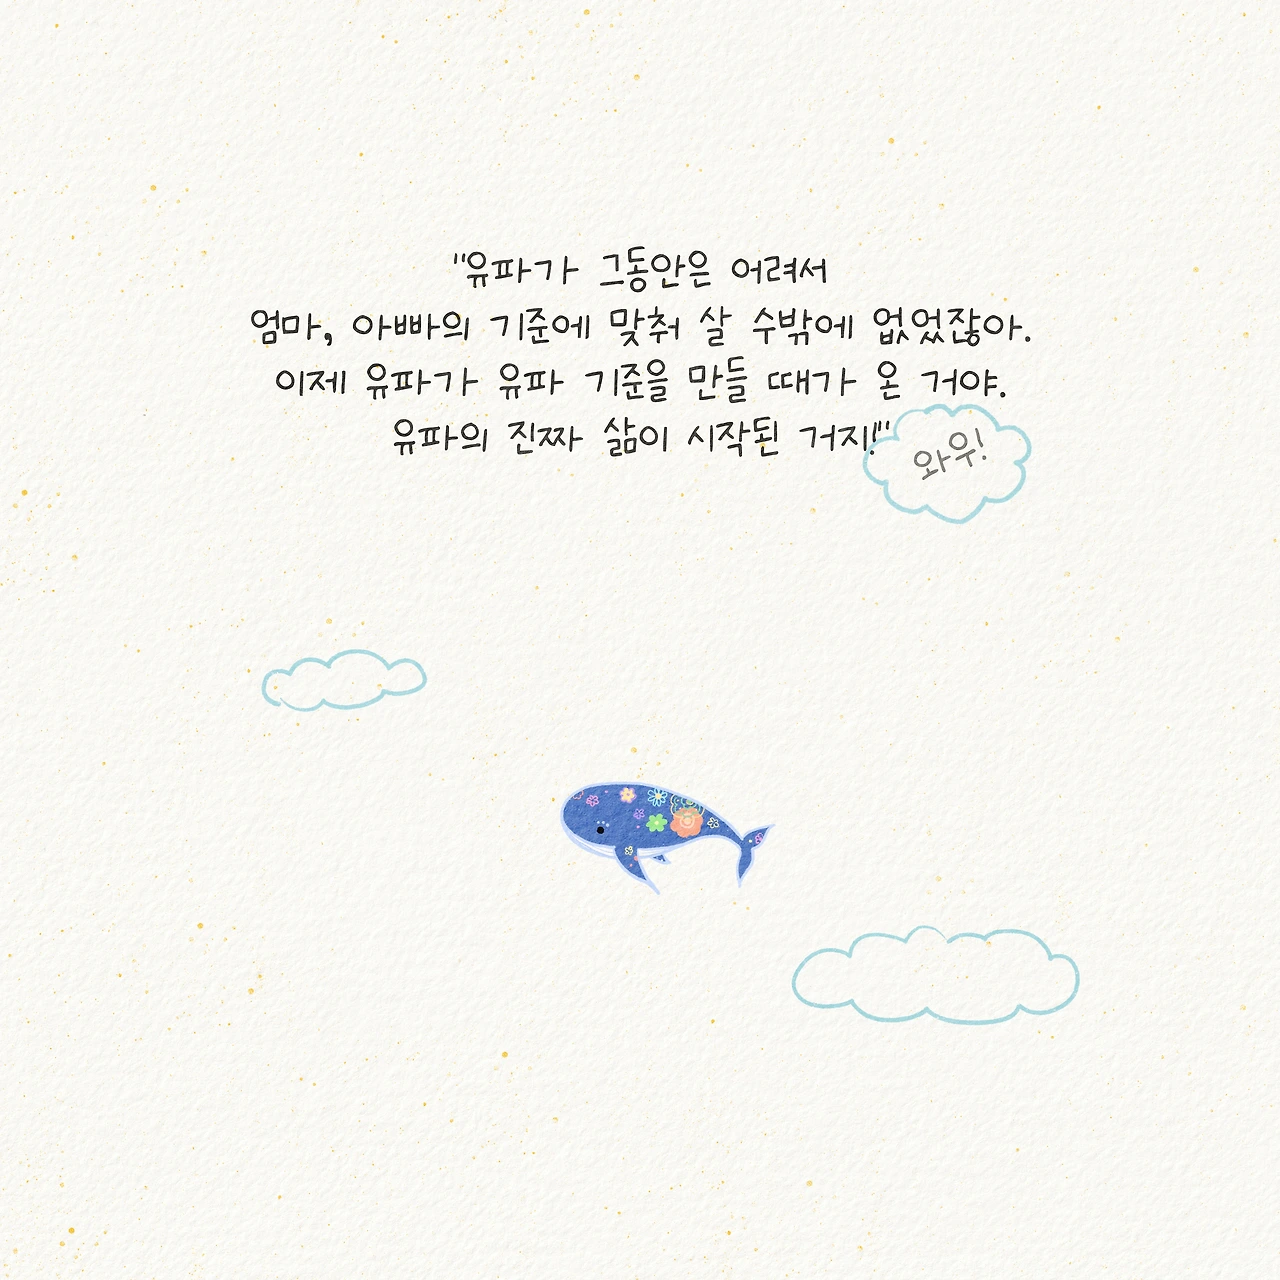 "유파가 그동안은 어려서
엄마, 아빠의 기준에 맞춰 살 수밖에 없었잖아.
이제 유파가 유파 기준을 만들 때가 온 거야.
유파의 진짜 삶이 시작된 거지!"
와우!